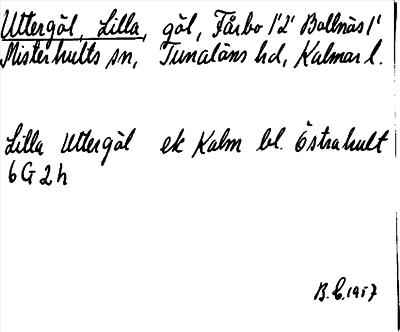 Uttergöl, Lilla, göl, Fårbo 1'2' Bollnäs 1'
Misterhults sn, Tunaläns hd, Kalmar l.
Lilla Uttergöl ek Kalm bl. Östrahult
6G2h
B.E. 1957